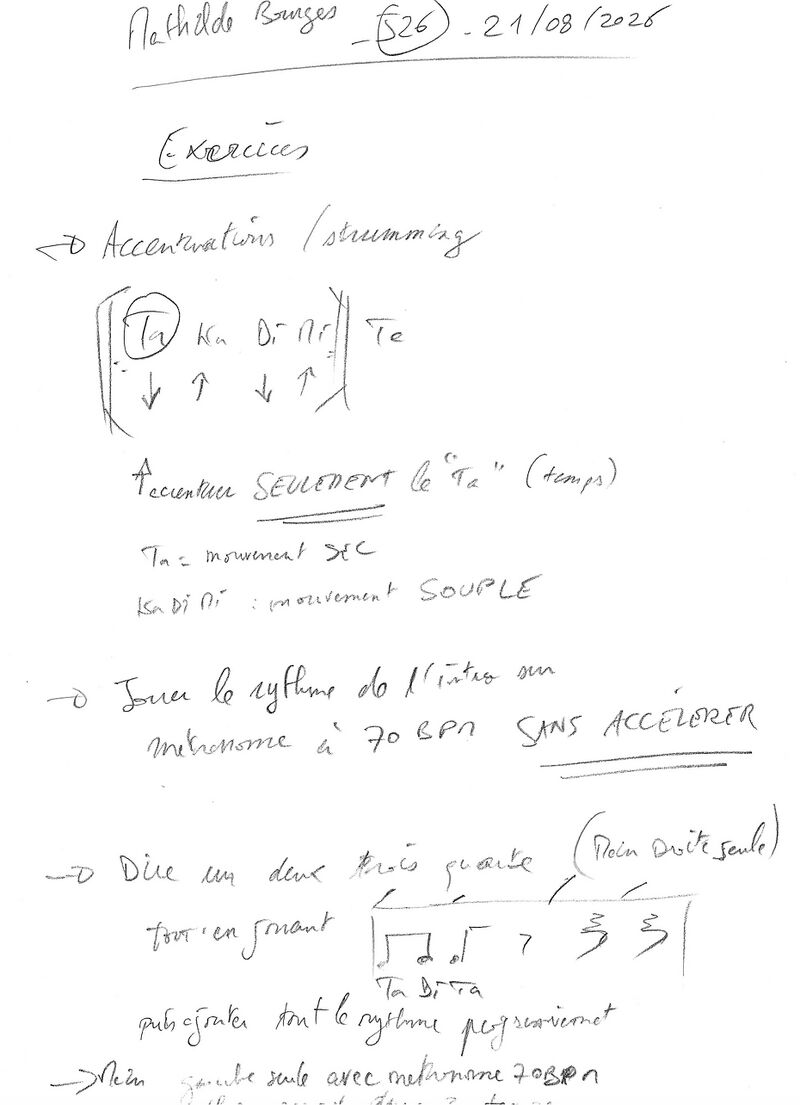 Mathilde Bourges - S26 - 21/08/2026
Exercices
→ Accentuations / strumming
Ta Ka Di Mi Ta
↓ ↑ ↓ ↑
↑ accentuer SEULEMENT le "Ta" (temps)
Ta = mouvement SEC
Ka Di Mi : mouvement SOUPLE
→ Jouer le rythme de l'intro sur
métronome à 70 BPM SANS ACCÉLERER
→ Dire un deux trois quatre (Main Droite seule)
tout en jouant
Ta Di Ta
puis ajouter tout le rythme progressivemet
→ Main gauche seule avec métronome 70 BPM